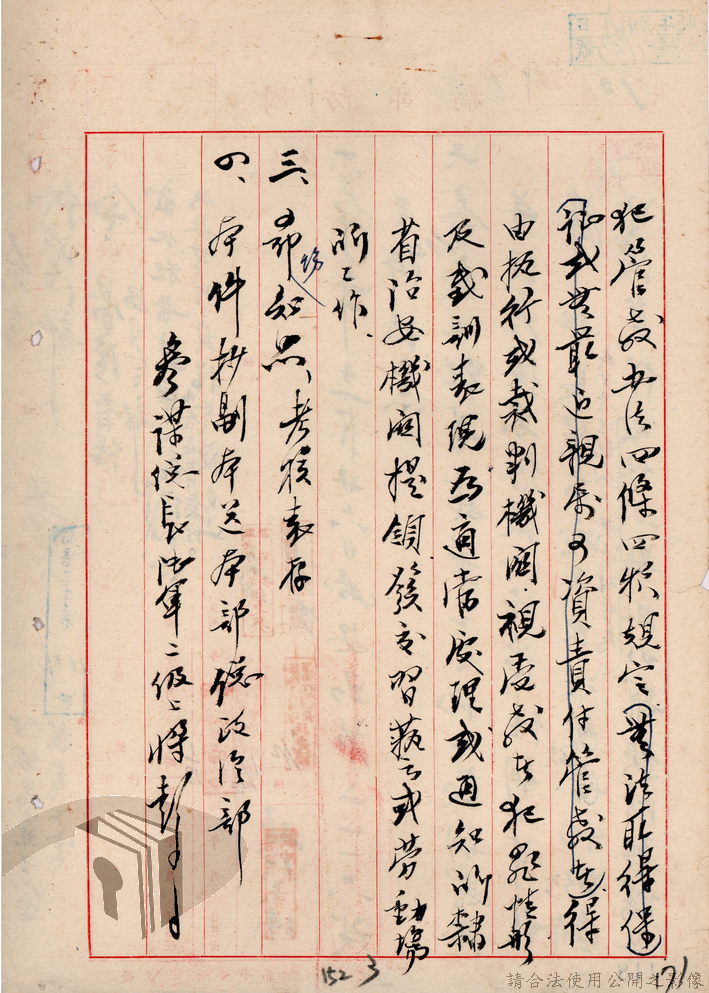 犯管教办法四條四款規定無法取得保
證或無最近親屬可資責付管教者得
由執行或裁判機關視受教者犯罪情形
及感訓表現爲適當處理或通知所隸
省治安機關提領發交習藝或勞動場
所工作、
三、希知照、考核表存
四、本件抄副本送本部總政治部
參謀總長陸軍二級上將彭
152
3
請合法使用公開之影像